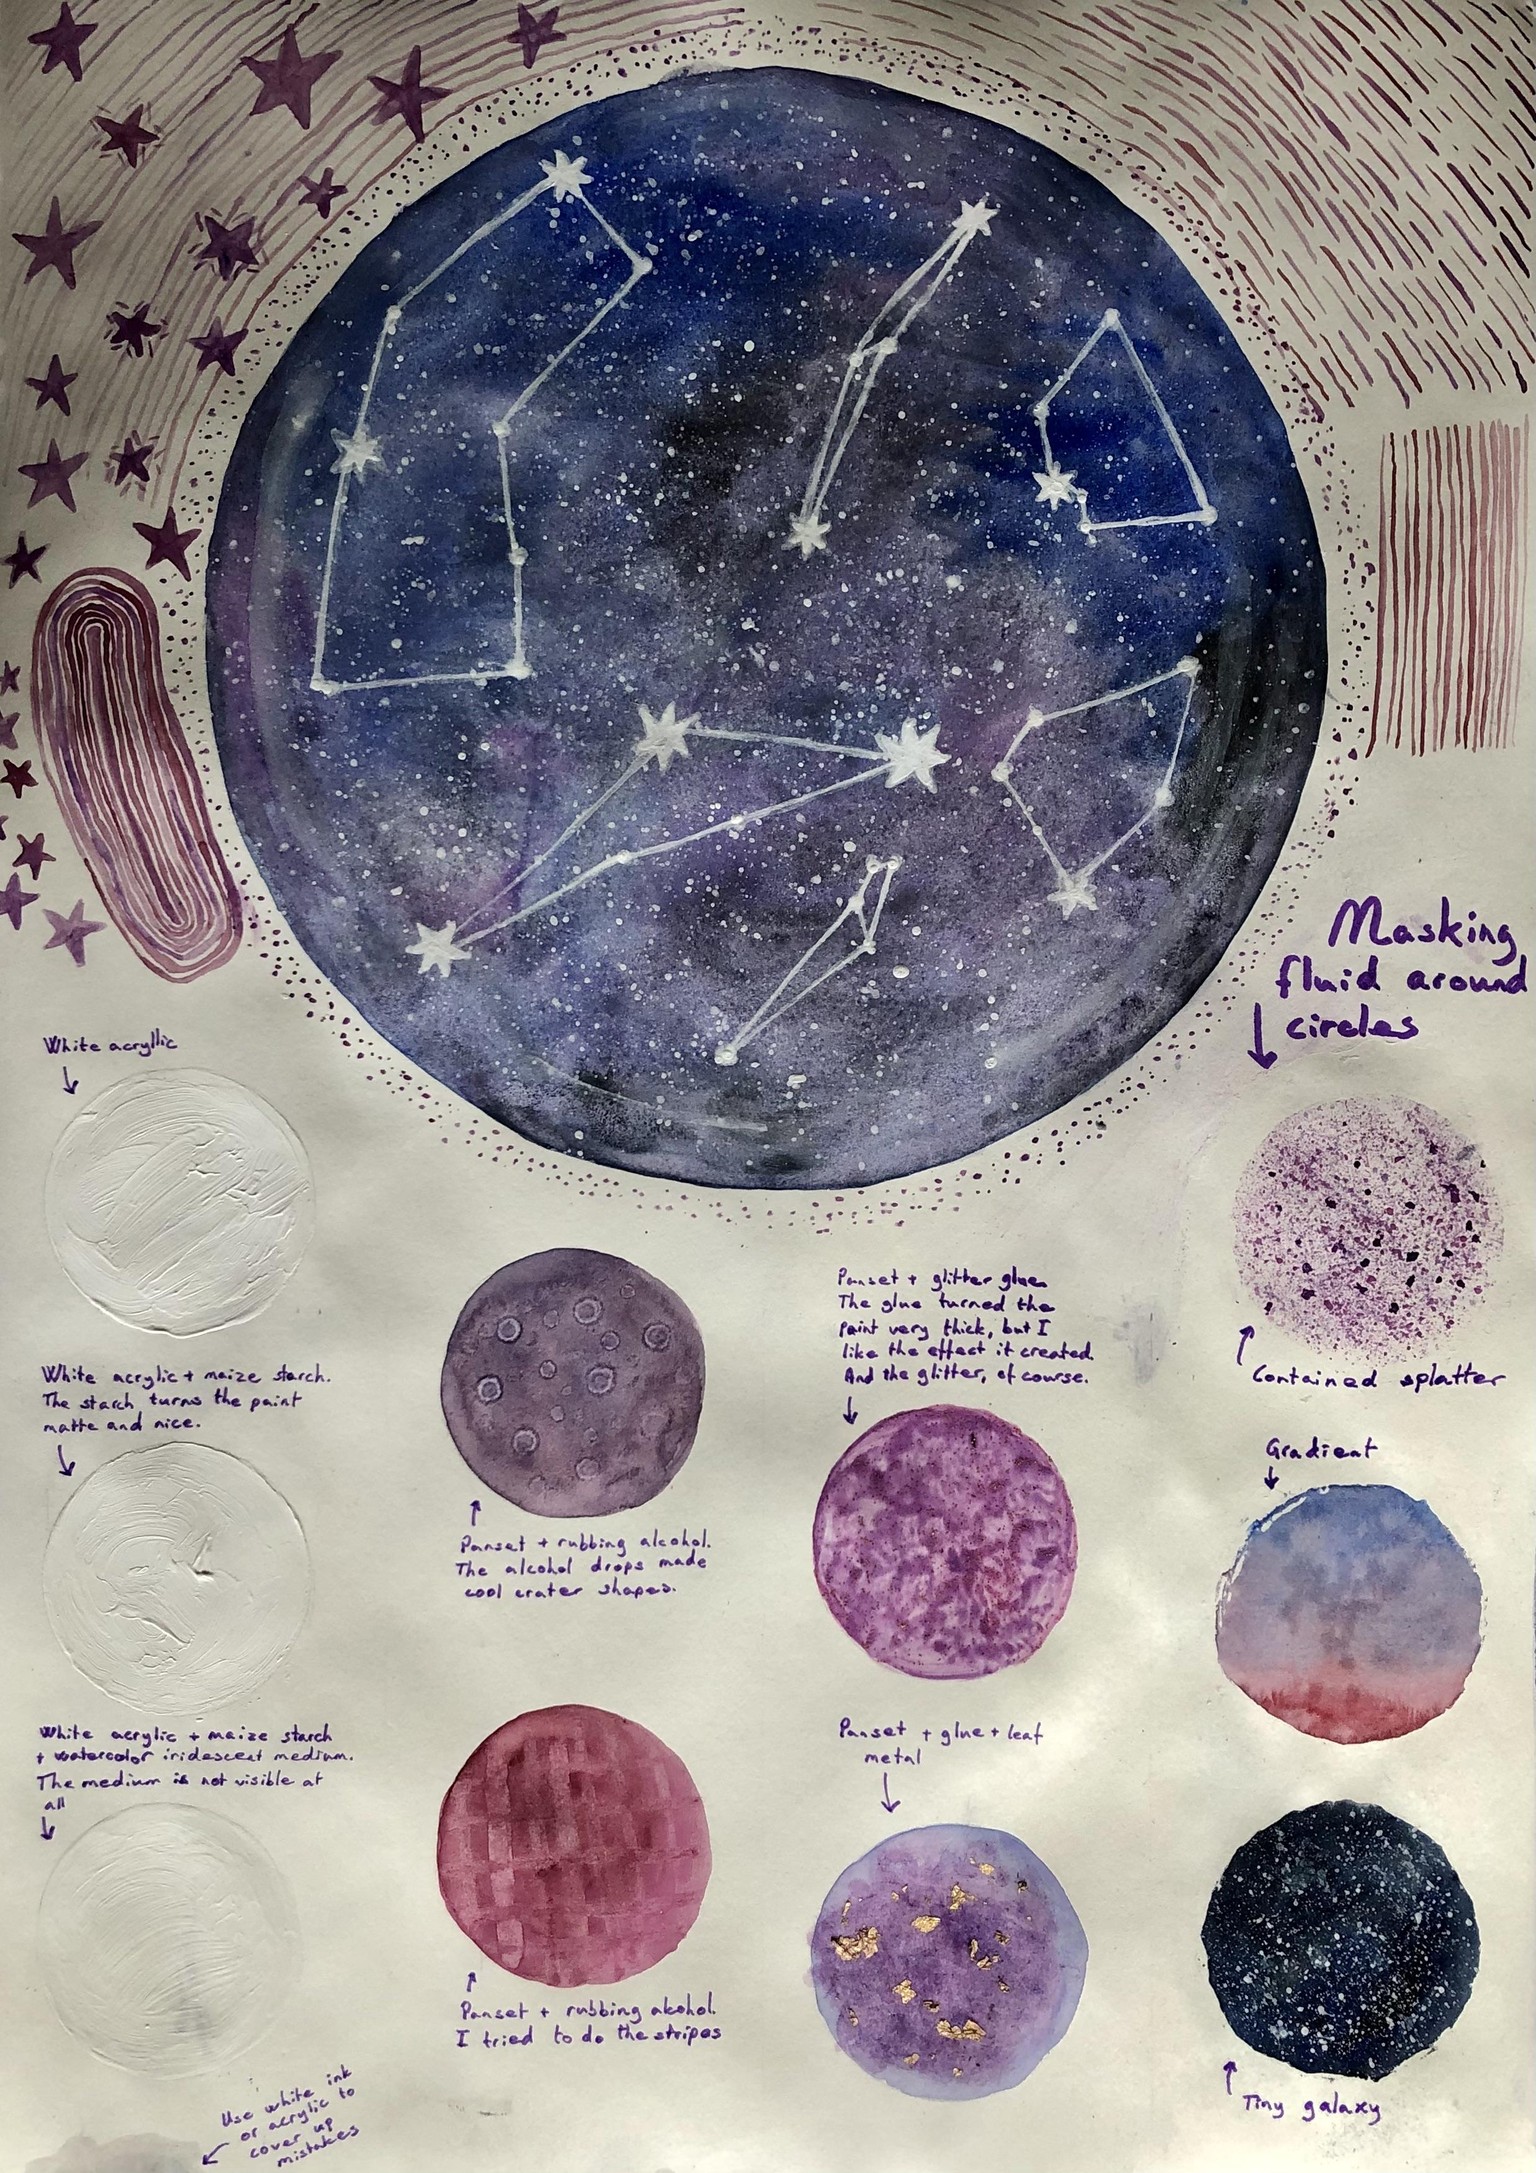 Masking
fluid around
circles
White acryllic
White acrylic + maize starch.
The starch turns the paint
matte and nice.
White acrylic + maize starch
+ watercolor iridescent medium.
The medium is not visible at
all
Use white ink
or acrylic to
cover up
mistakes
Panset + rubbing alcohol.
The alcohol drops made
cool crater shapes.
Panset + rubbing alcohol.
I tried to do the stripes
Panset + glitter glue
The glue turned the
paint very thick, but I
like the effect it created.
And the glitter, of course.
Panset + glue + leaf
metal
Contained splatter
Gradient
Tiny galaxy